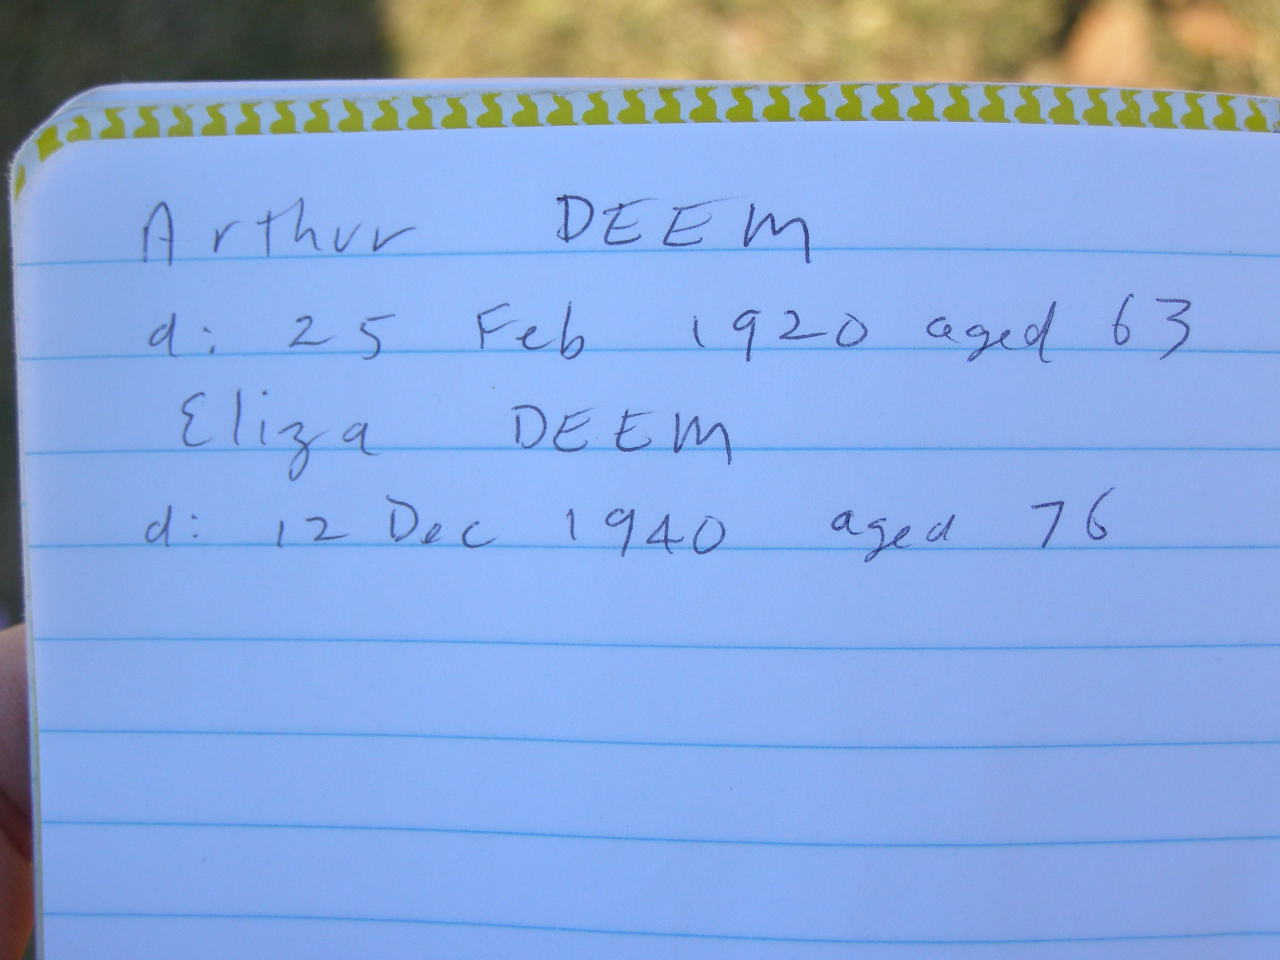 Arthur DEEM
d: 25 Feb 1920 aged 63
Eliza DEEM
d: 12 Dec 1940 aged 76